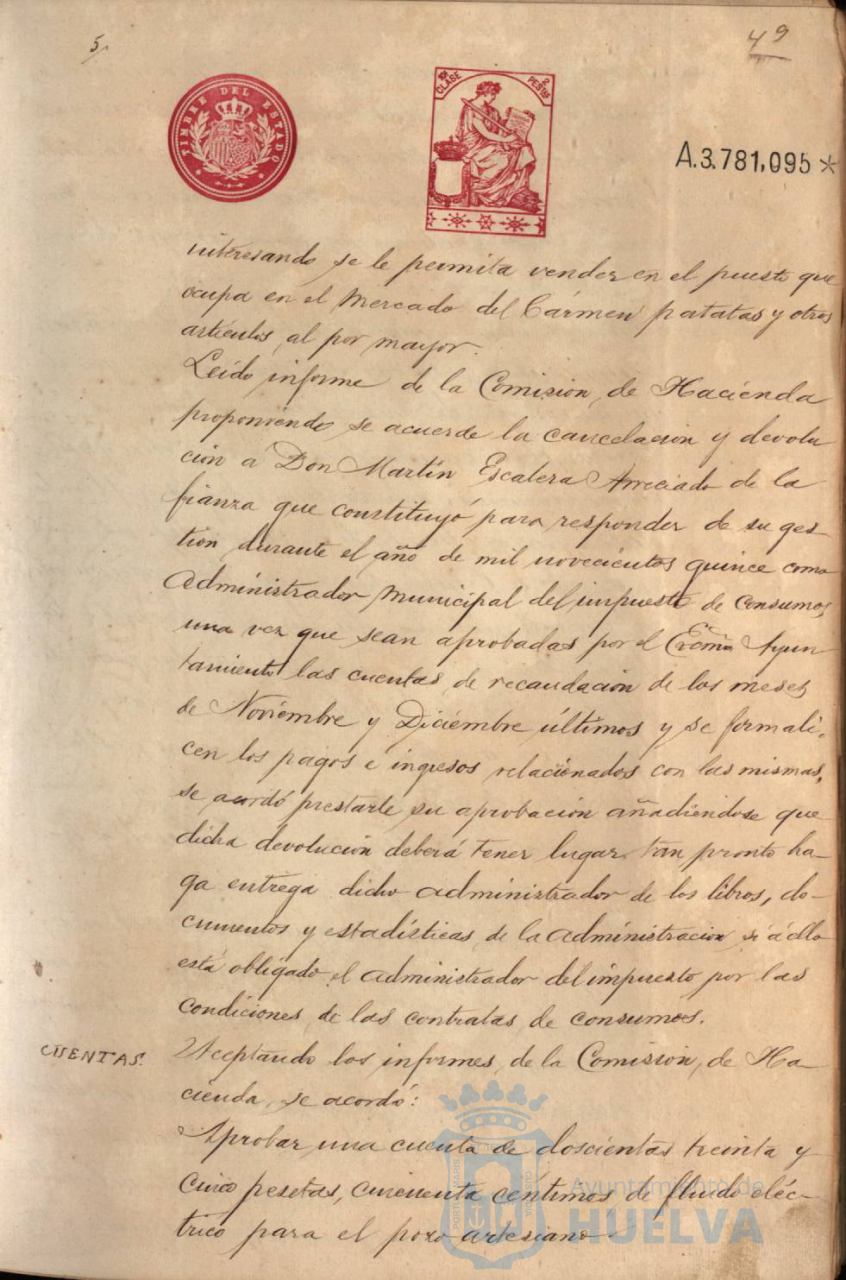 5
49
TIMBRE DEL ESTADO
10ª CLASE
2 PESETAS
A.3.781,095*
interesando se le permita vender en el puesto que
ocupa en el Mercado del Cármen patatas y otros
artículos, al por mayor.
Leído informe de la Comisión de Hacienda
proponiendo se acuerde la cancelación y devolu
ción á Don Martín Escalera Arreciado de la
fianza que constituyó para responder de su ges-
tión durante el año de mil novecientos quince como
Administrador Municipal del impuesto de Consumos,
una vez que sean aprobadas por el Excmo Ayun-
tamiento las cuentas de recaudación de los meses
de Noviembre y Diciembre últimos y se formali-
cen los pagos e ingresos relacionados con las mismas,
se acordó prestarle su aprobación añadiéndose que
dicha devolución deberá tener lugar tan pronto ha-
ga entrega dicho administrador de los libros, do-
cumentos y estadísticas de la administración si á ello
está obligado el administrador del impuesto por las
condiciones de las contratas de consumos.
CUENTAS.
Aceptando los informes de la Comisión de Ha-
cienda, se acordó:
Aprobar una cuenta de doscientas treinta y
cinco pesetas, cincuenta céntimos de fluido eléc-
trico para el pozo artesiano
Ayuntamiento de
HUELVA